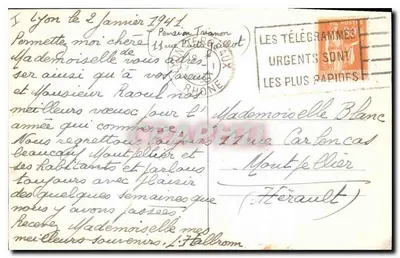 Lyon le 2 Janvier 1941
Pension Trianon
11 rue Puits Gaillot
Permettez moi chère
Mademoiselle de vous adres-
ser ainsi qu'à vos parents
et Monsieur Raoul nos
meilleurs vœux pour l'
année qui commence.
Nous regrettons toujours
beaucoup Montpellier et
ses habitants et parlons
toujours avec plaisir
des quelques semaines que
nous y avons passées.
Recevez Mademoiselle mes
meilleurs souvenirs.
RHONE
LES TÉLÉGRAMMES
URGENTS SONT
LES PLUS RAPIDES
Mademoiselle Blanc
11 rue Carlencas
Montpellier
(Hérault)